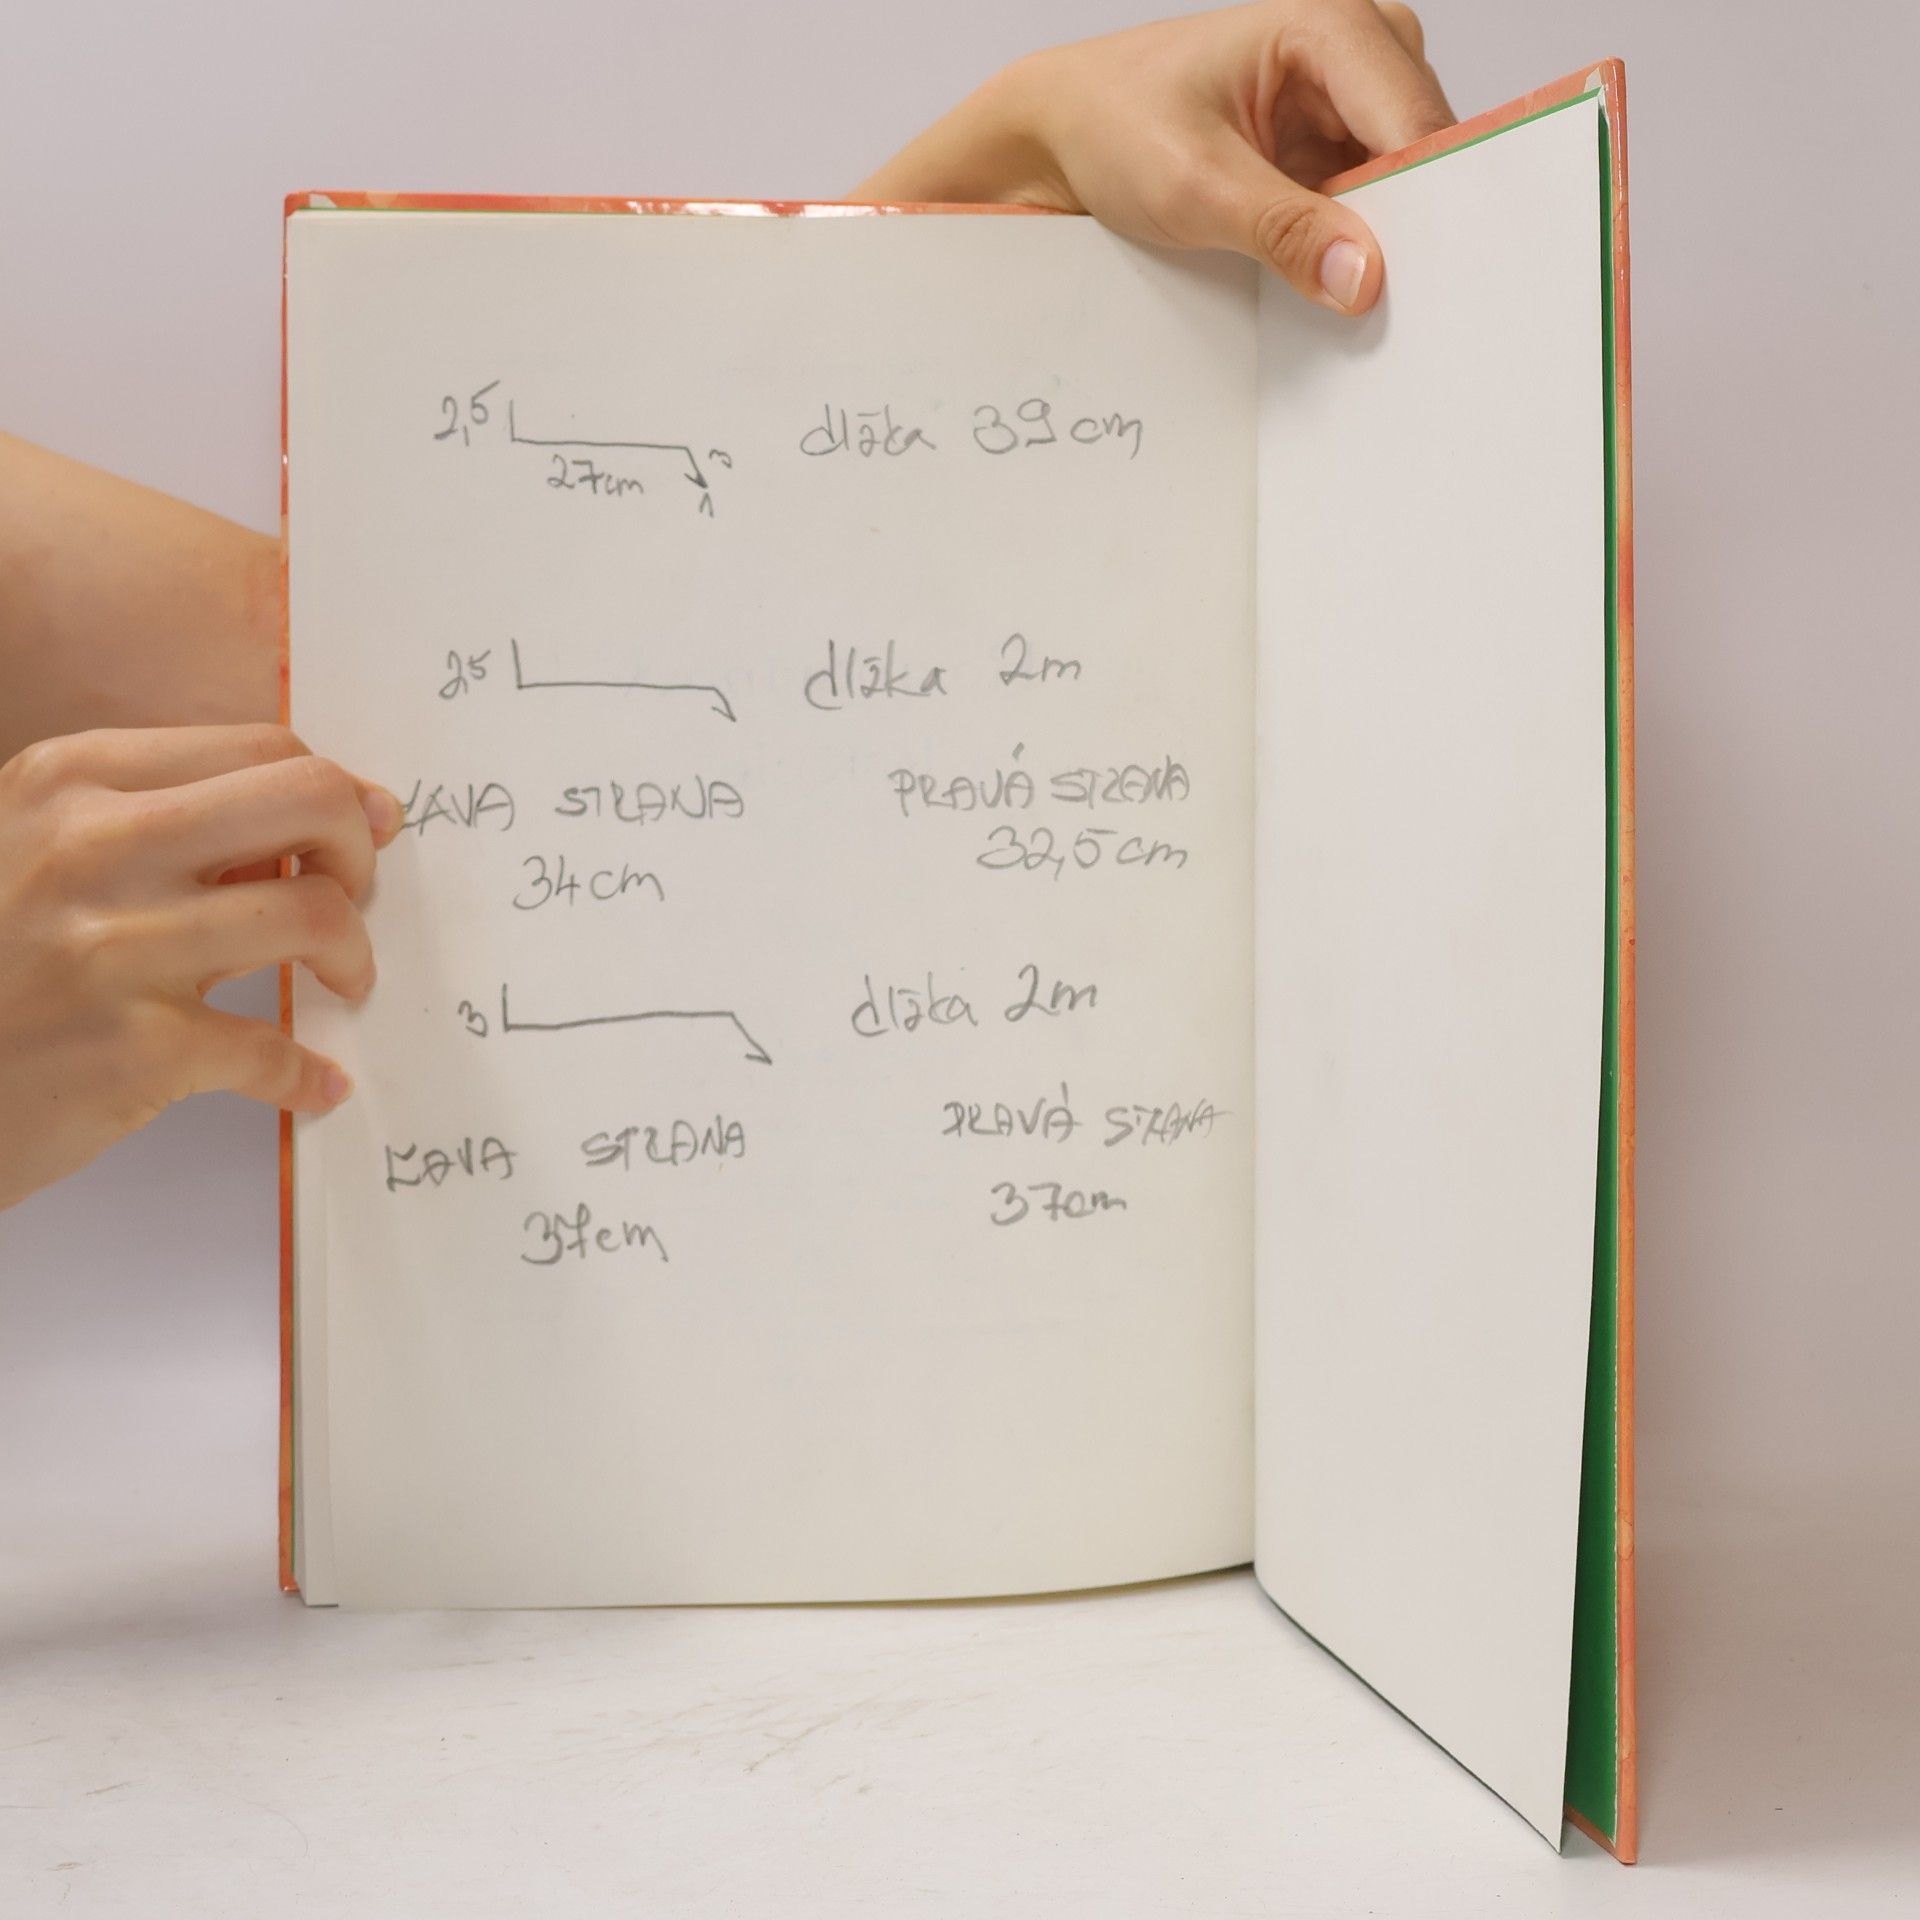 2,5 27cm 3 1 dlžka 39cm
2,5 dlžka 2m
ĽAVA STRANA PRAVÁ STRANA
34cm 32,5cm
3 dlžka 2m
ĽAVA STRANA PRAVÁ STRANA
37cm 37cm